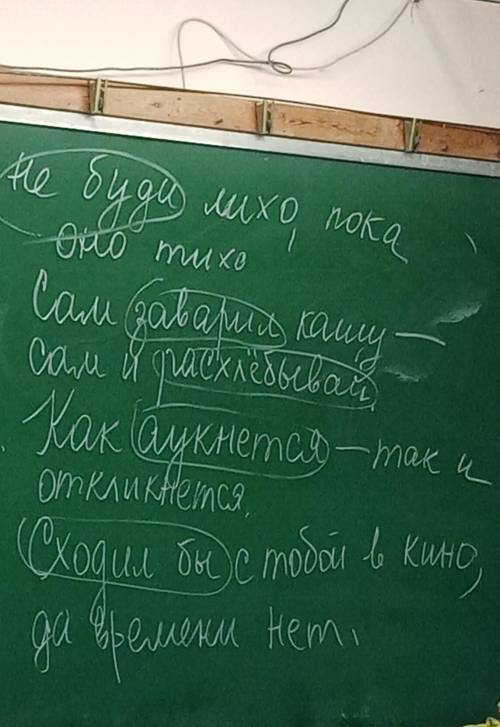 Не буди лихо, пока
оно тихо
Сам заварил кашу —
сам и расхлёбывай.
Как аукнется — так и
откликнется.
Сходил бы с тобой в кино,
да времени нет.